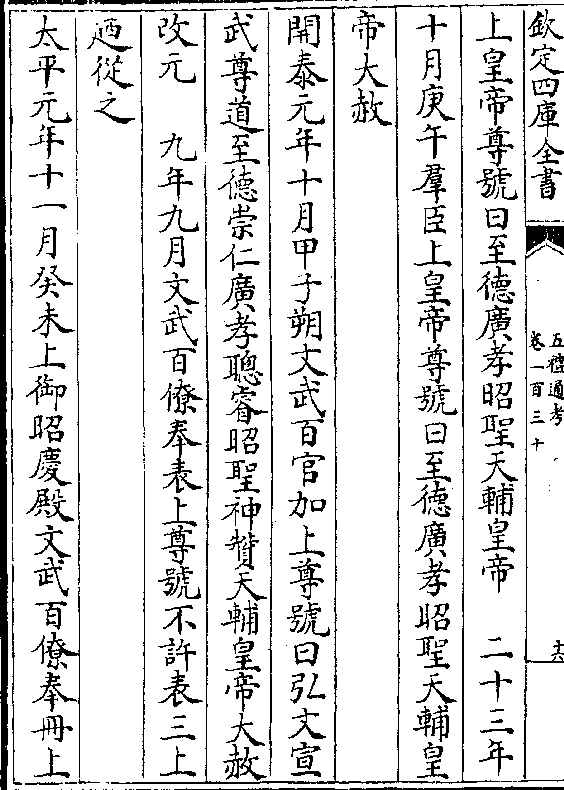 欽定四庫全書
五禮通考
卷一百三十
十六
上皇帝尊號曰至德廣孝昭聖天輔皇帝　二十三年
十月庚午羣臣上皇帝尊號曰至德廣孝昭聖天輔皇
帝大赦
開泰元年十月甲子朔文武百官加上尊號曰弘文宣
武尊道至德崇仁廣孝聰睿昭聖神贊天輔皇帝大赦
改元　九年九月文武百僚奉表上尊號不許表三上
廼從之
太平元年十一月癸未上御昭慶殿文武百僚奉冊上